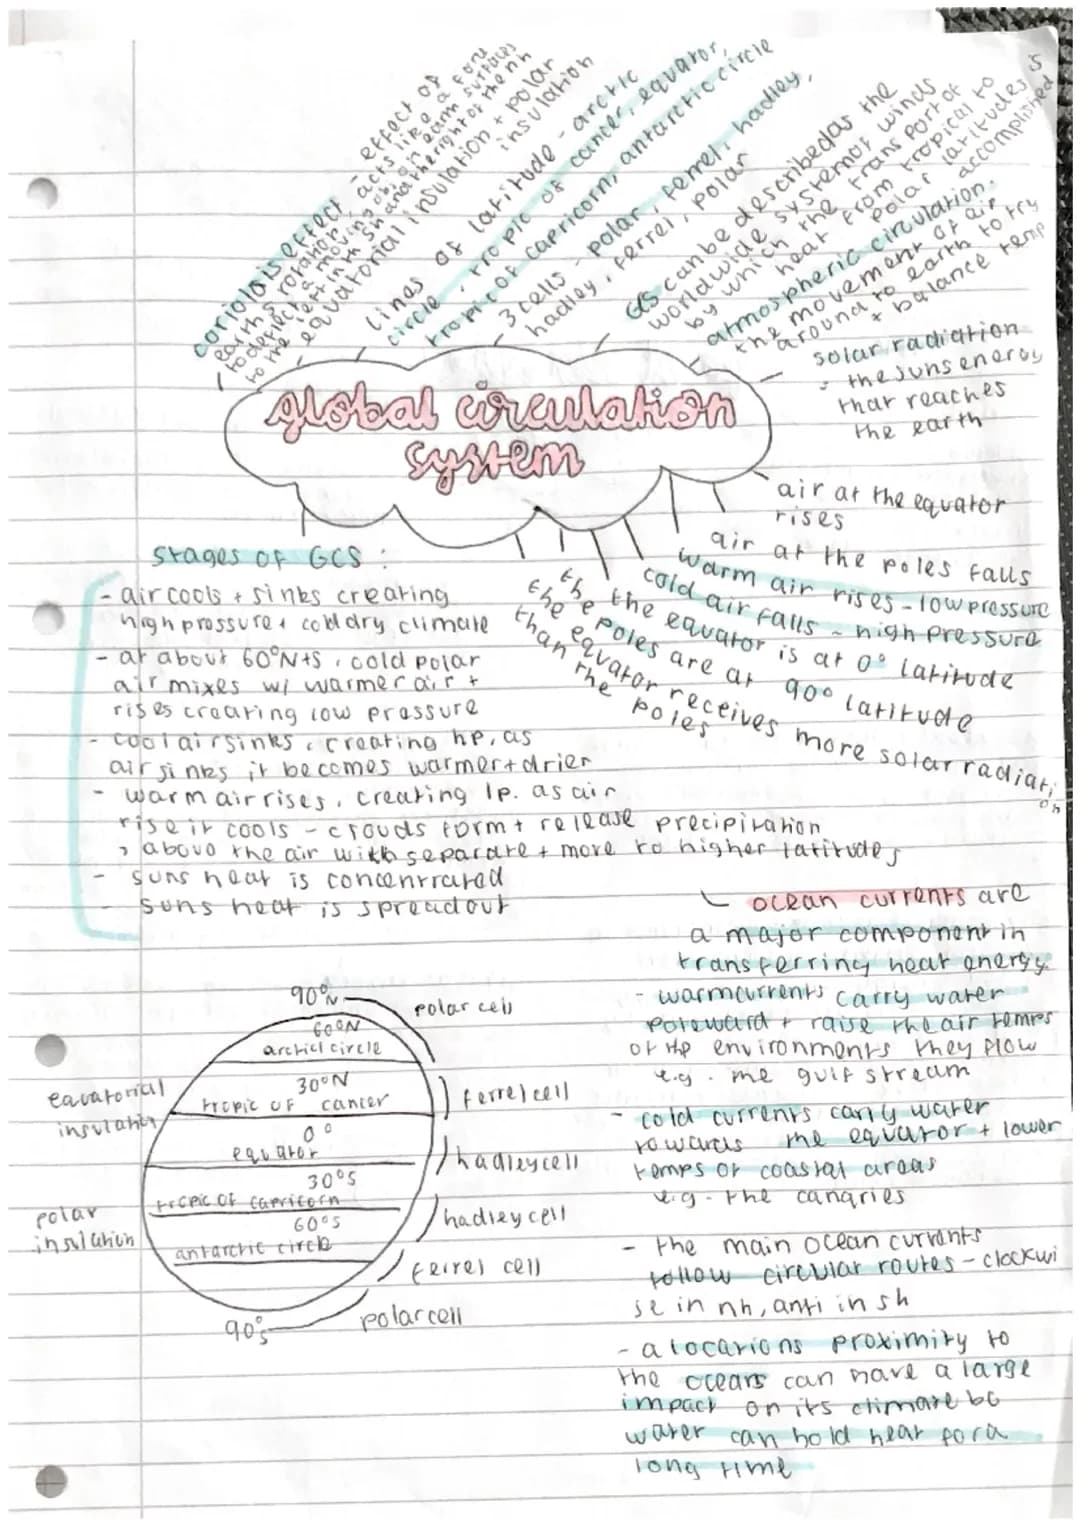 coriolis effect - effect of
earths rotation, acts like a force
to deflect a moving obj. on earth surfaces
to the left in th sh and the right of the nh
equatorial insulation + polar
insulation
lines of latitude - arctic
circle, tropic of cancer, equator,
tropic of capricorn, antarctic circle
3 cells - polar, ferrel, hadley,
hadley, ferrel, polar
GCS can be described as the
worldwide system of winds
by which the transport of
heat from tropical to
polar latitudes is
accomplished
atmospheric circulation:
the movement of air
around to earth to try
+ balance temp
solar radiation
: the suns energy
that reaches
the earth
global circulation
system
air at the equator
rises
air at the poles falls
warm air rises - low pressure
cold air falls - high pressure
the equator is at 0° latitude
the poles are at 90° latitude
the equator receives more solar radiation
than the poles
stages of GCS :
- air cools + sinks creating
high pressure + cold dry climate
- at about 60°N+S, cold polar
air mixes w/ warmer air +
rises creating low pressure
- cool air sinks, creating hp, as
air sinks it becomes warmer + drier
- warm air rises, creating lp. as air
rise it cools - clouds form + release precipitation
, above the air with separate + more to higher latitudes
- suns heat is concentrated
- suns heat is spread out
ocean currents are
a major component in
transferring heat energy
- warm currents carry water
poleward + raise the air temps
of the environments they flow
e.g. the gulf stream
- cold currents carry water
towards the equator + lower
temps of coastal areas
e.g. the canaries
- the main ocean currents
follow circular routes - clockwi
se in nh, anti in sh
- a locations proximity to
the oceans can have a large
impact on its climate bc
water can hold heat for a
long time
90°N
polar cell
60°N
arctic circle
30°N
tropic of cancer
ferrel cell
equatorial
insulation
0°
equator
hadley cell
30°S
tropic of capricorn
hadley cell
polar
insulation
60°S
antarctic circle
ferrel cell
90°S
polar cell